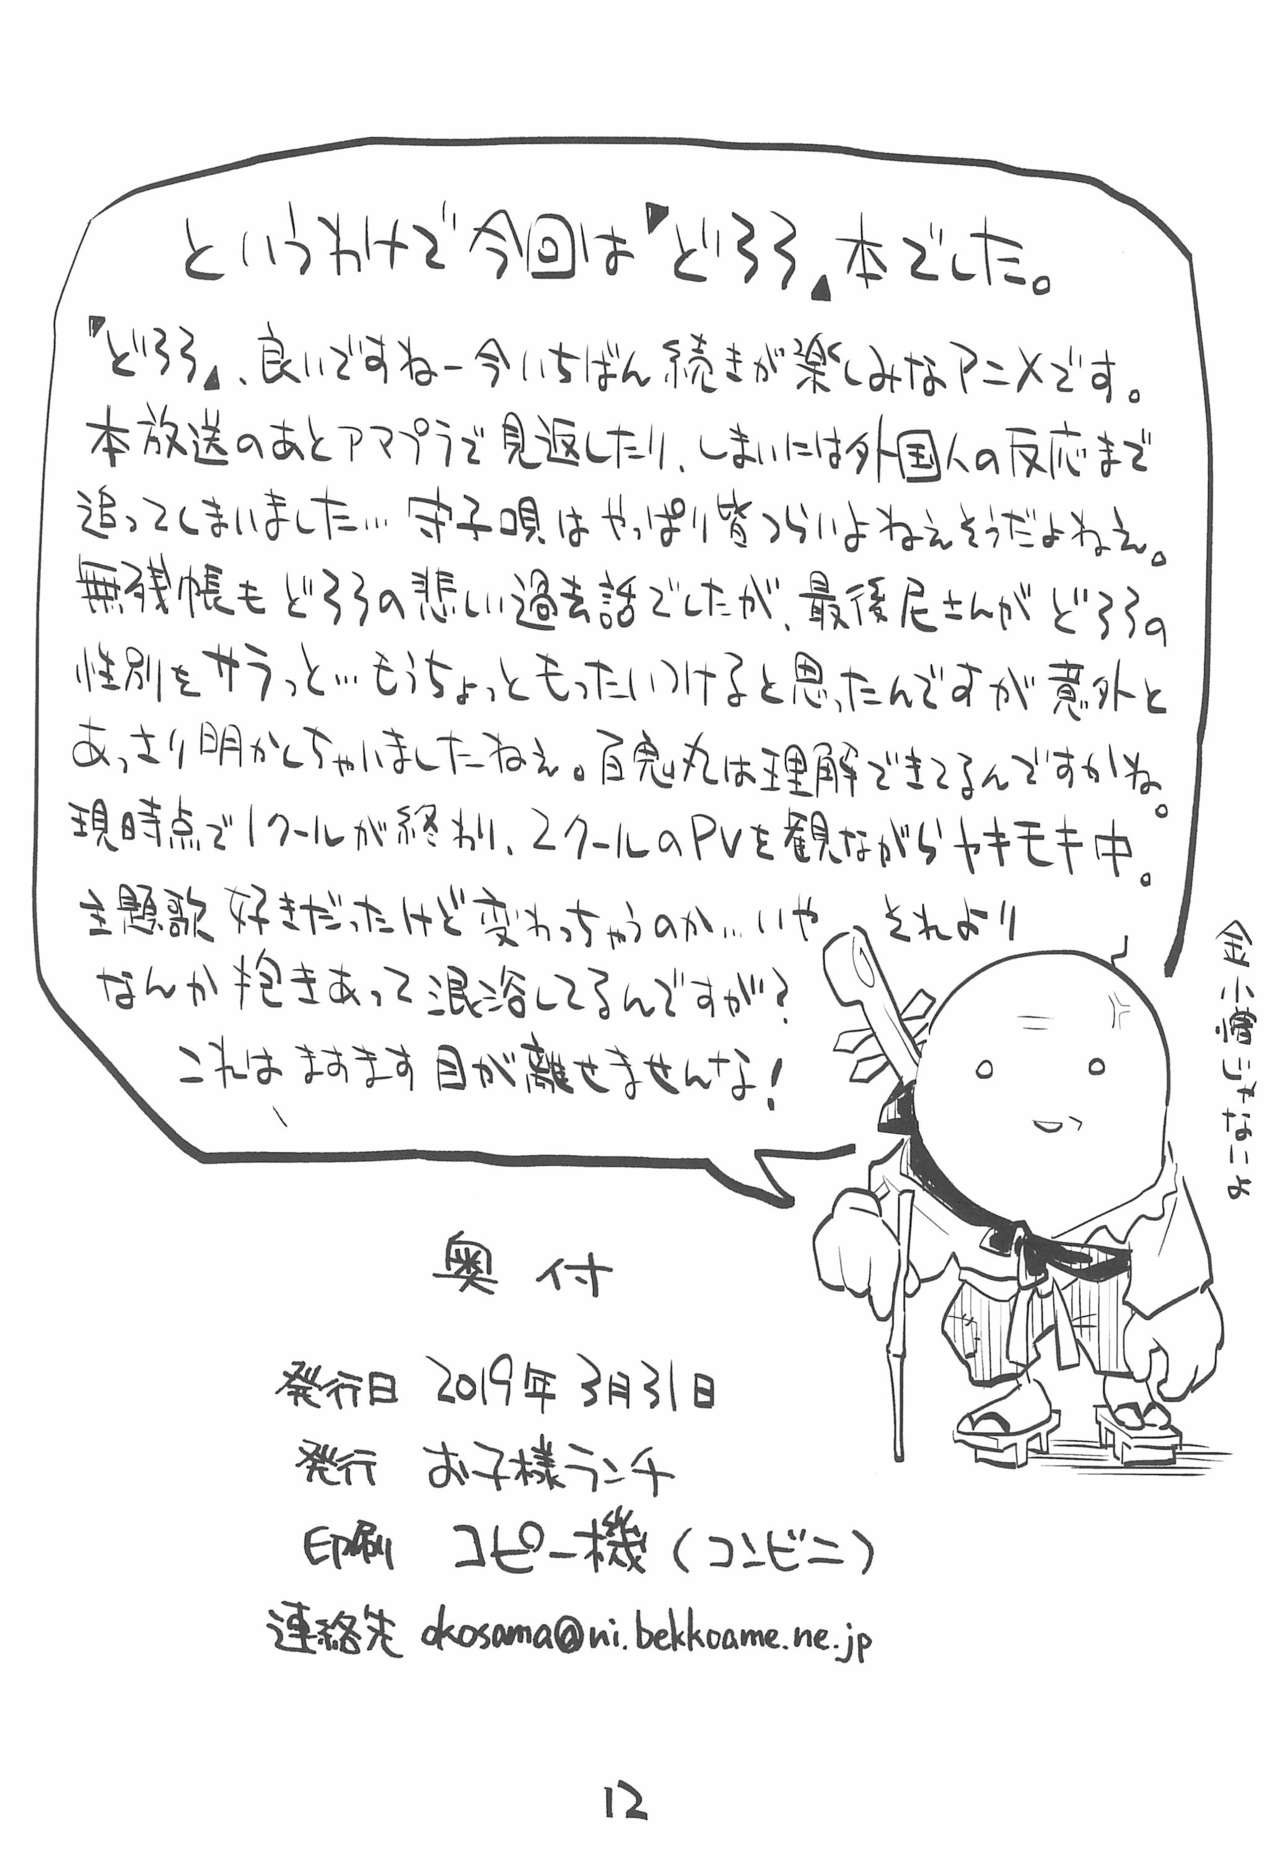 というわけで今回は『どろろ』本でした。
『どろろ』、良いですねー今いちばん続きが楽しみなアニメです。
本放送のあとアマプラで見返したり、しまいには外国人の反応まで
追ってしまいました…守子唄はやっぱり皆つらいよねぇそうだよねぇ。
無残帳もどろろの悲しい過去話でしたが、最後尼さんがどろろの
性別をサラっと…もうちょっともったいつけると思ったんですが意外と
あっさり明かしちゃいましたねぇ。百鬼丸は理解できてるんですかね。
現時点で1クールが終わり、2クールのPVを観ながらヤキモキ中。
主題歌好きだったけど変わっちゃうのか…いや それより
なんか抱きあって混浴してるんですが?
これはますます目が離せませんな!
金小僧じゃないよ
奥付
発行日 2019年3月31日
発行 お子様ランチ
印刷 コピー機(コンビニ)
連絡先 okosama@ni.bekkoame.ne.jp
12